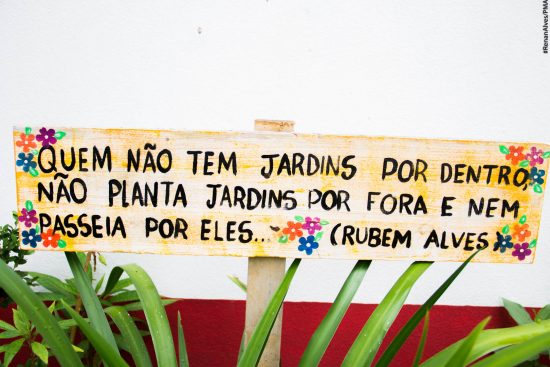 QUEM NÃO TEM JARDINS POR DENTRO,
NÃO PLANTA JARDINS POR FORA E NEM
PASSEIA POR ELES... (RUBEM ALVES)
#RenanAlves/PMA